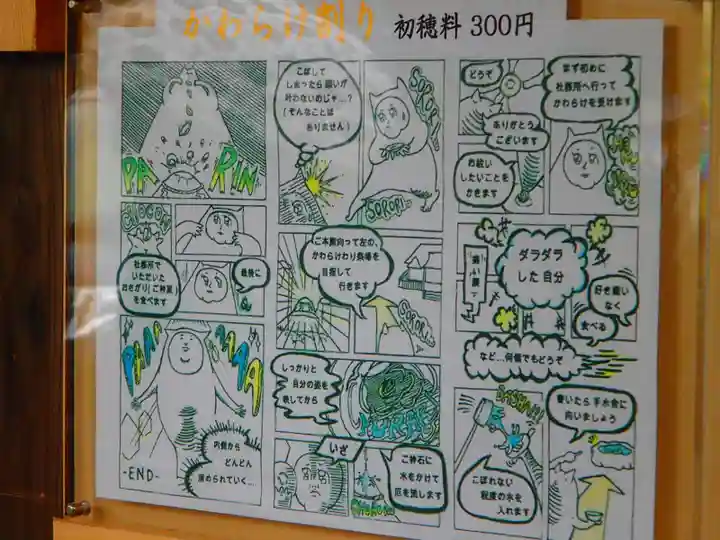 かわらけ割り 初穂料 300円
まず初めに
社務所へ行って
かわらけを受けます
どうぞ
ありがとう
ございます
お祓い
したいことを
かきます
ダラダラ
した自分
好き嫌い
なく
食べる
など…何個でもどうぞ
書いたら手水舎に
向いましょう
こぼれない
程度の水を
入れます
SORORI
こぼして
しまったら願いが
叶わないのじゃ…?
(そんなことは
ありません)
SORORI
ご本殿向って左の、
かわらけわり祭場を
目指して
行きます
SORORI
しっかりと
自分の姿を
映してから
いざ
ご神石に
水をかけて
厄を流します
PA
RIN
最後に
社務所で
いただいた
おさがり(ご神菓)
を食べます
内側から
どんどん
清められていく…
-END-